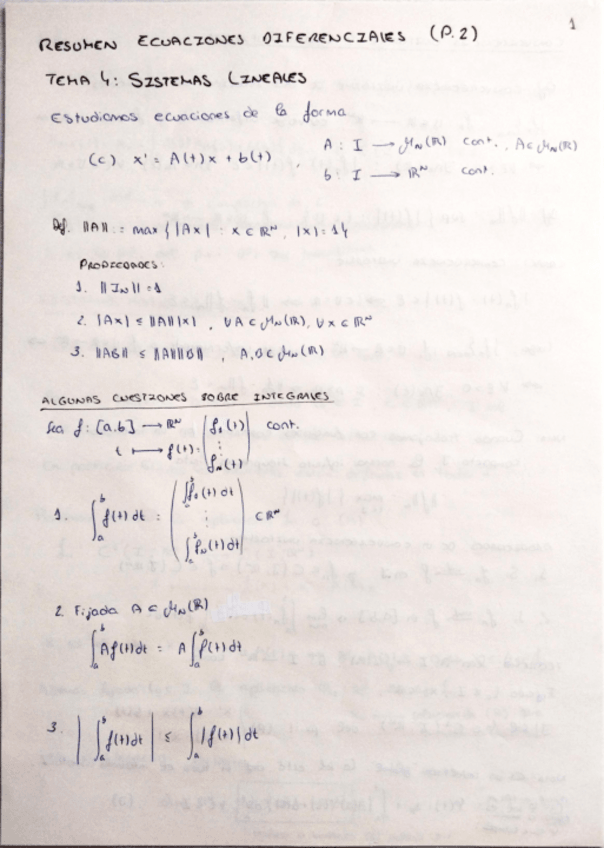 1
RESUMEN ECUACIONES DIFERENCIALES (P.2)
TEMA 4: SISTEMAS LINEALES
Estudiamos ecuaciones de la forma
(c) x' = A(t)x + b(t)
A : I → M_N(ℝ) cont. A ∈ M_N(ℝ)
b : I → ℝ^N cont.
Def. ||A|| := max { |Ax| : x ∈ ℝ^N, |x| = 1 }
PROPIEDADES:
1. ||I_N|| = 1
2. |Ax| ≤ ||A|| |x| , ∀A ∈ M_N(ℝ), ∀x ∈ ℝ^N
3. ||AB|| ≤ ||A|| ||B|| , A,B ∈ M_N(ℝ)
ALGUNAS CUESTIONES SOBRE INTEGRALES
Sea f : [a,b] → ℝ^N cont.
t ↦ f(t) = (f_1(t) ⋮ f_N(t))
1. ∫_a^b f(t) dt = (∫_a^b f_1(t) dt ⋮ ∫_a^b f_N(t) dt) ∈ ℝ^N
2. Fijada A ∈ M_N(ℝ)
∫_a^b A f(t) dt = A ∫_a^b f(t) dt
3. | ∫_a^b f(t) dt | ≤ ∫_a^b |f(t)| dt